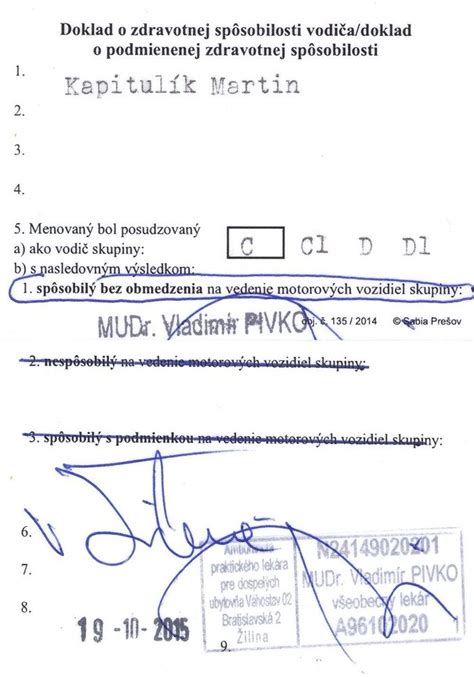 Doklad o zdravotnej spôsobilosti vodiča/doklad
o podmienenej zdravotnej spôsobilosti
1.
Kapitulík Martin
2.
3.
4.
5. Menovaný bol posudzovaný
a) ako vodič skupiny: C C1 D D1
b) s nasledovným výsledkom:
1. spôsobilý bez obmedzenia na vedenie motorových vozidiel skupiny:
MUDr. Vladimír PIVKO obj. č. 135 / 2014 © Sabia Prešov
2. nespôsobilý na vedenie motorových vozidiel skupiny:
3. spôsobilý s podmienkou na vedenie motorových vozidiel skupiny:
6. V Žiline
7.
8. 19 -10- 2015
9.
Ambulancia
praktického lekára
pre dospelých
ubytovňa Váhostav 02
Bratislavská 2
Žilina
N24149020201
MUDr. Vladimír PIVKO
všeobecný lekár
A96102020